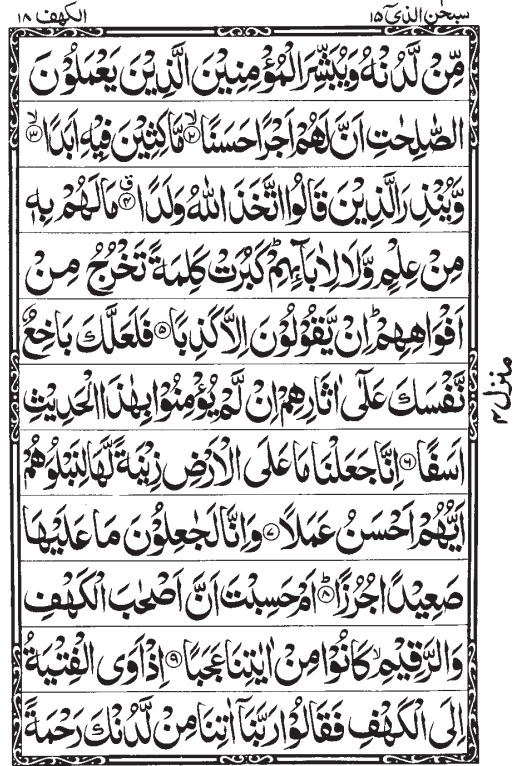 سبحٰن الذیٓ ۱۵
الکهف ۱۸
مِّنْ لَّدُنْهُ وَيُبَشِّرَ الْمُؤْمِنِيْنَ الَّذِيْنَ يَعْمَلُوْنَ
الصّٰلِحٰتِ اَنَّ لَهُمْ اَجْرًا حَسَنًا ۙ‏﴿۲﴾ مَّاكِثِيْنَ فِيْهِ اَبَدًا ۙ‏﴿۳﴾
وَّيُنْذِرَ الَّذِيْنَ قَالُوا اتَّخَذَ اللّٰهُ وَلَدًا ۛق‏﴿۴﴾ مَا لَهُمْ بِهٖ
مِنْ عِلْمٍ وَّلَا لِاٰبَآئِهِمْ ؕ كَبُرَتْ كَلِمَةً تَخْرُجُ مِنْ
اَفْوَاهِهِمْ ؕ اِنْ يَّقُوْلُوْنَ اِلَّا كَذِبًا ﴿۵﴾ فَلَعَلَّكَ بَاخِعٌ
نَّفْسَكَ عَلٰٓى اٰثَارِهِمْ اِنْ لَّمْ يُؤْمِنُوْا بِهٰذَا الْحَدِيْثِ
اَسَفًا ﴿۶﴾ اِنَّا جَعَلْنَا مَا عَلَى الْاَرْضِ زِيْنَةً لَّهَا لِنَبْلُوَهُمْ
اَيُّهُمْ اَحْسَنُ عَمَلًا ﴿۷﴾ وَاِنَّا لَجٰعِلُوْنَ مَا عَلَيْهَا
صَعِيْدًا جُرُزًا ؕ‏﴿۸﴾ اَمْ حَسِبْتَ اَنَّ اَصْحٰبَ الْكَهْفِ
وَالرَّقِيْمِ ۙ كَانُوْا مِنْ اٰيٰتِنَا عَجَبًا ﴿۹﴾ اِذْ اَوَى الْفِتْيَةُ
اِلَى الْكَهْفِ فَقَالُوْا رَبَّنَآ اٰتِنَا مِنْ لَّدُنْكَ رَحْمَةً
منزل ۴